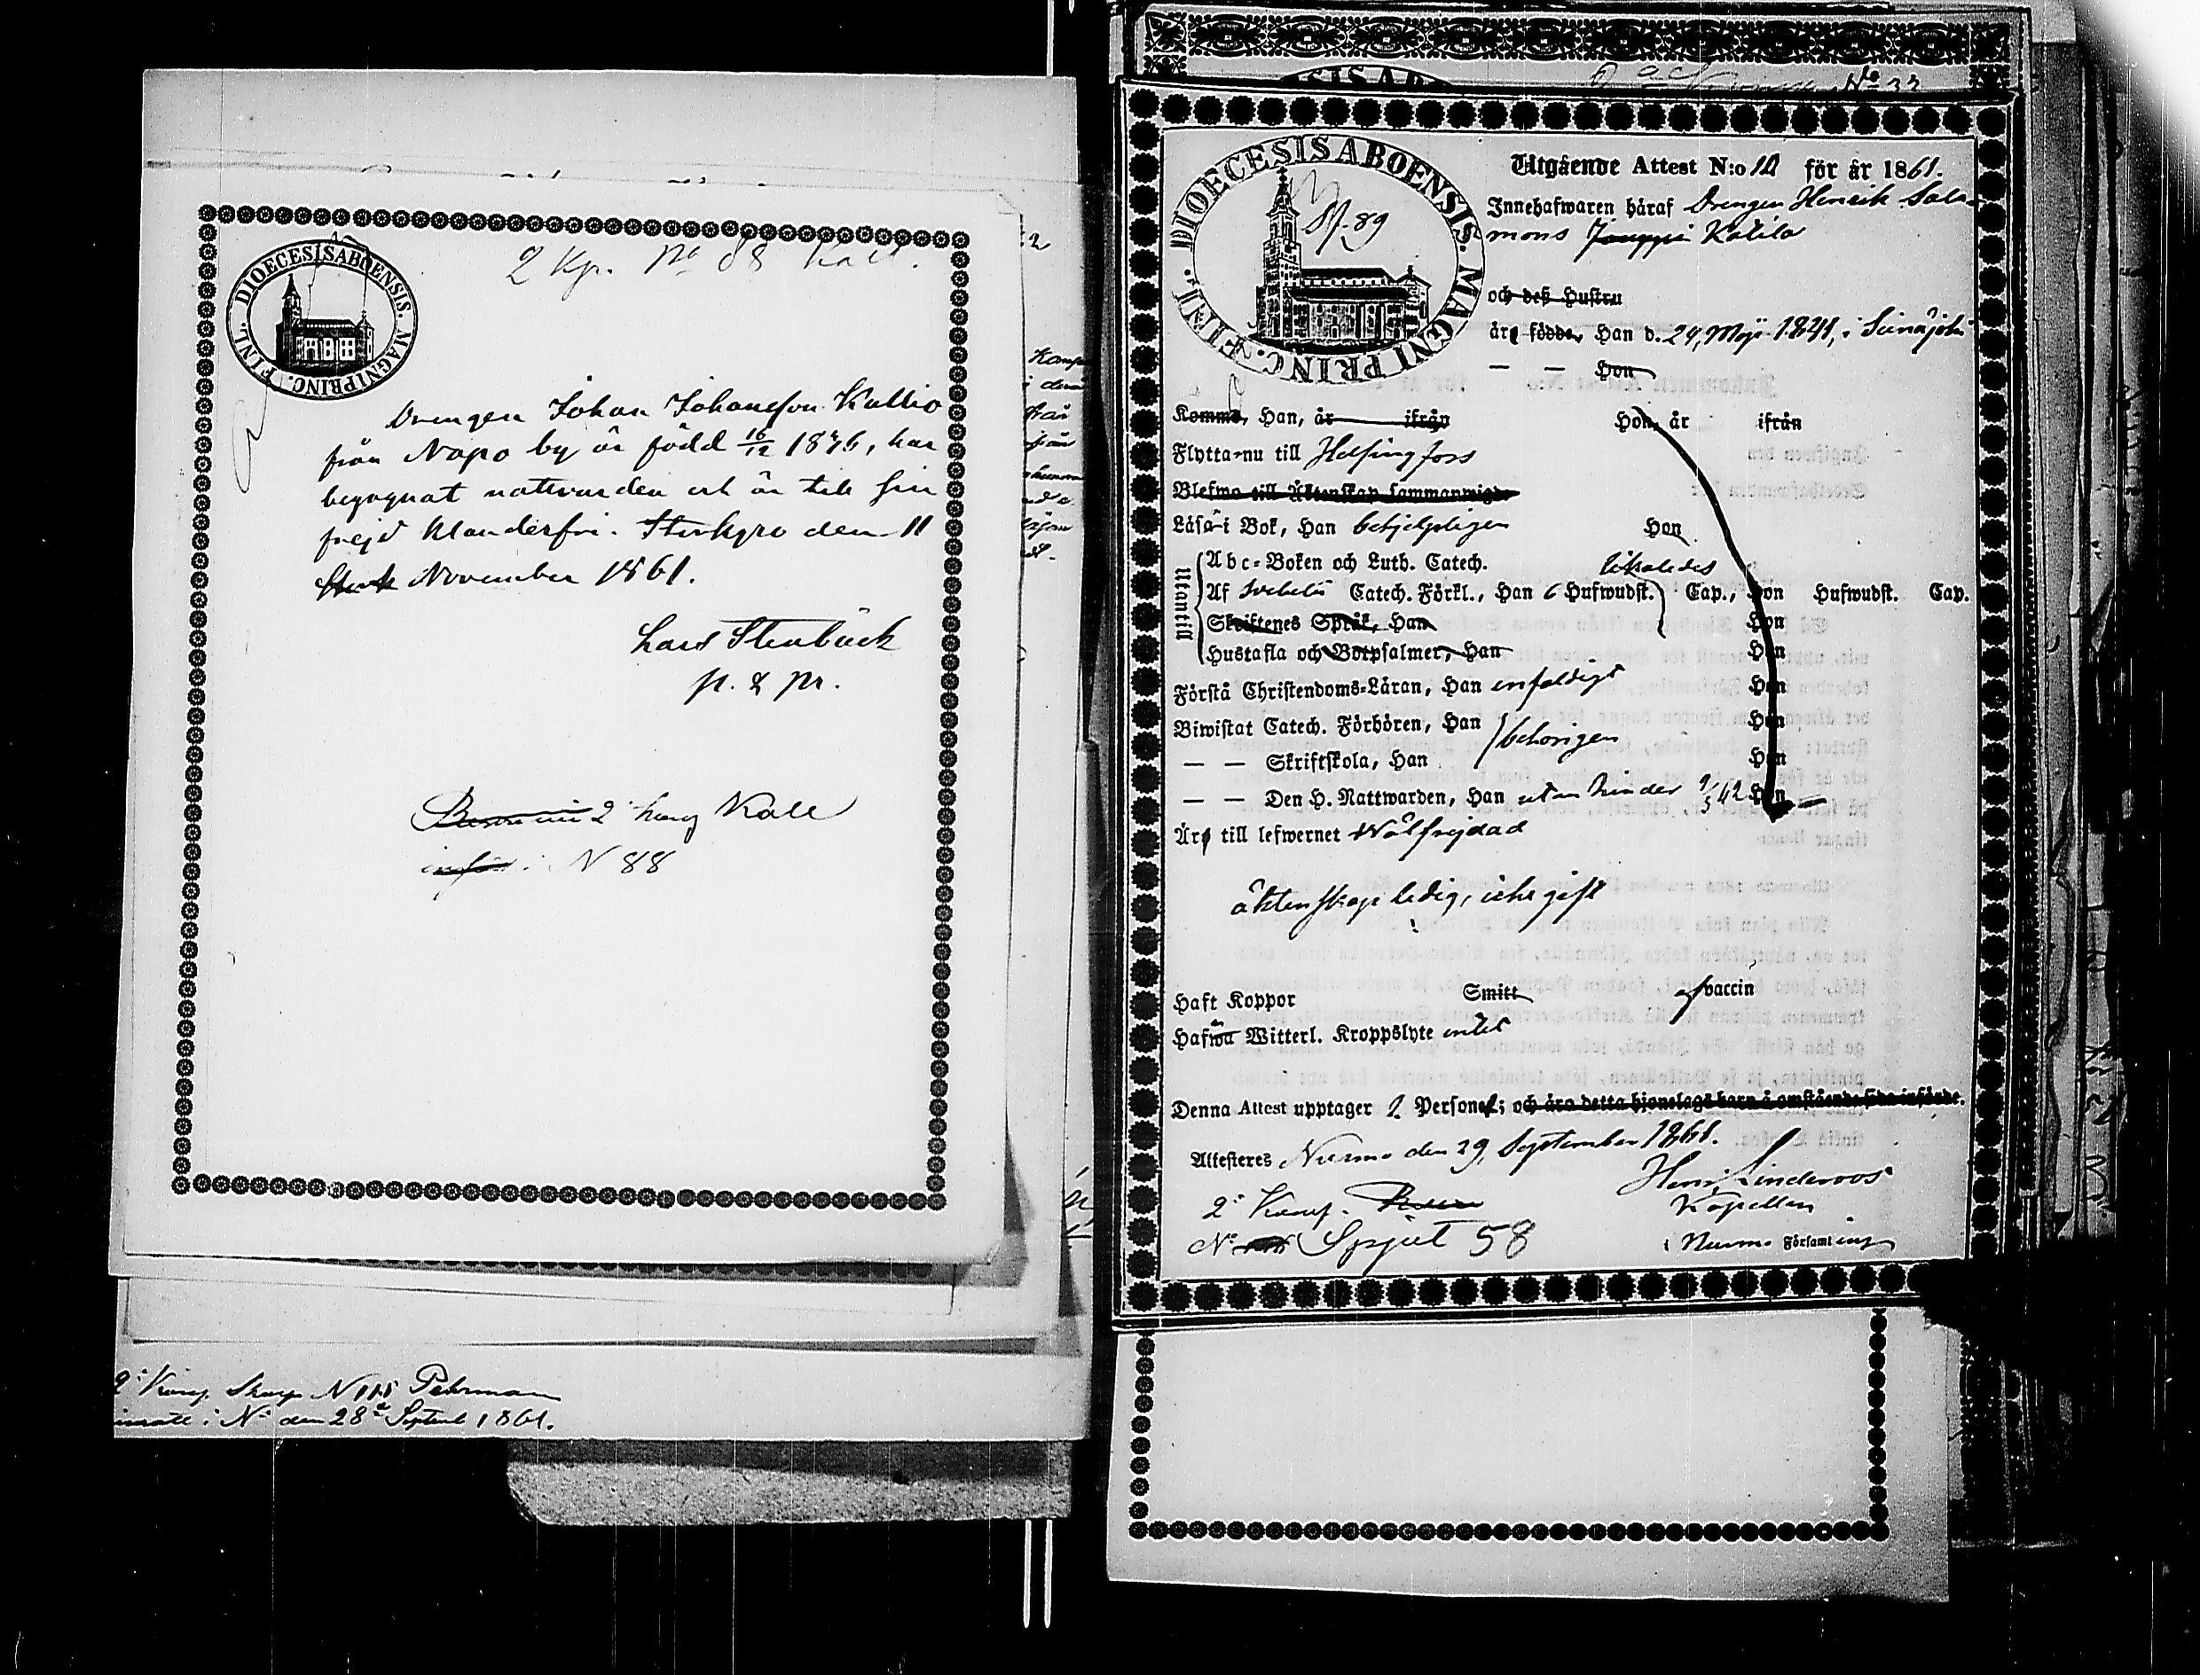 DIOECESIS ABOENSIS. MAGNI PRINC. FINL.
2 Kp. No 88
Drengen Johan Johansson Kallio
från Napo by är född 16/12 1846, har
begagnat nattvarden och är till sin
frejd klanderfri. Storkyro den 11
November 1861.
Lars Stenbäck
p. & pr.
2 Komp Kall
N 88
2: Komp. N 115 Pehrman
i No den 28 Septemb 1861.
DIOECESIS ABOENSIS. MAGNI PRINC. FINL.
89
Utgående Attest N:o 10 för år 1861.
Innehafwaren häraf Drengen Henrik Salo-
mons Jouppi Katila
och deß Hustru
äro födde, Han d. 24, Maji 1841, i Seinäjoki
— — Hon
Komme, Han, år ifrån Hon, år ifrån
Flytta nu till Helsingfors
Blefwo till Äktenskap sammanwigde
Läsa i Bok, Han behjelpligen Hon
Utantill
Abc-Boken och Luth. Catech. likaledes
Af Svebelii Catech. Förkl., Han 6 Hufwudst. Cap., Hon Hufwudst. Cap.
Skriftenes Språk, Han Hon
Hustafla och Botpsalmer, Han Hon
Förstå Christendoms-Läran, Han enfaldigt Hon
Biwistat Catech. Förhören, Han behörigen Hon
— — Skriftskola, Han Hon
— — Den H. Nattwarden, Han utan hinder Hon
Äro till lefwernet Wälfrejdad
äktenskap ledig, icke gift
Haft Koppor Smitt af vaccin
Hafwa Witterl. Kroppslyte intet
Denna Attest upptager 1. Personer; och äro detta hjonelags barn å omstående sida införde.
Attesteras Nurmo den 29, September 1861.
Henr. Linderoos
Kapellan
i Nurmo Församling
2: Komp.
No Spjut 58